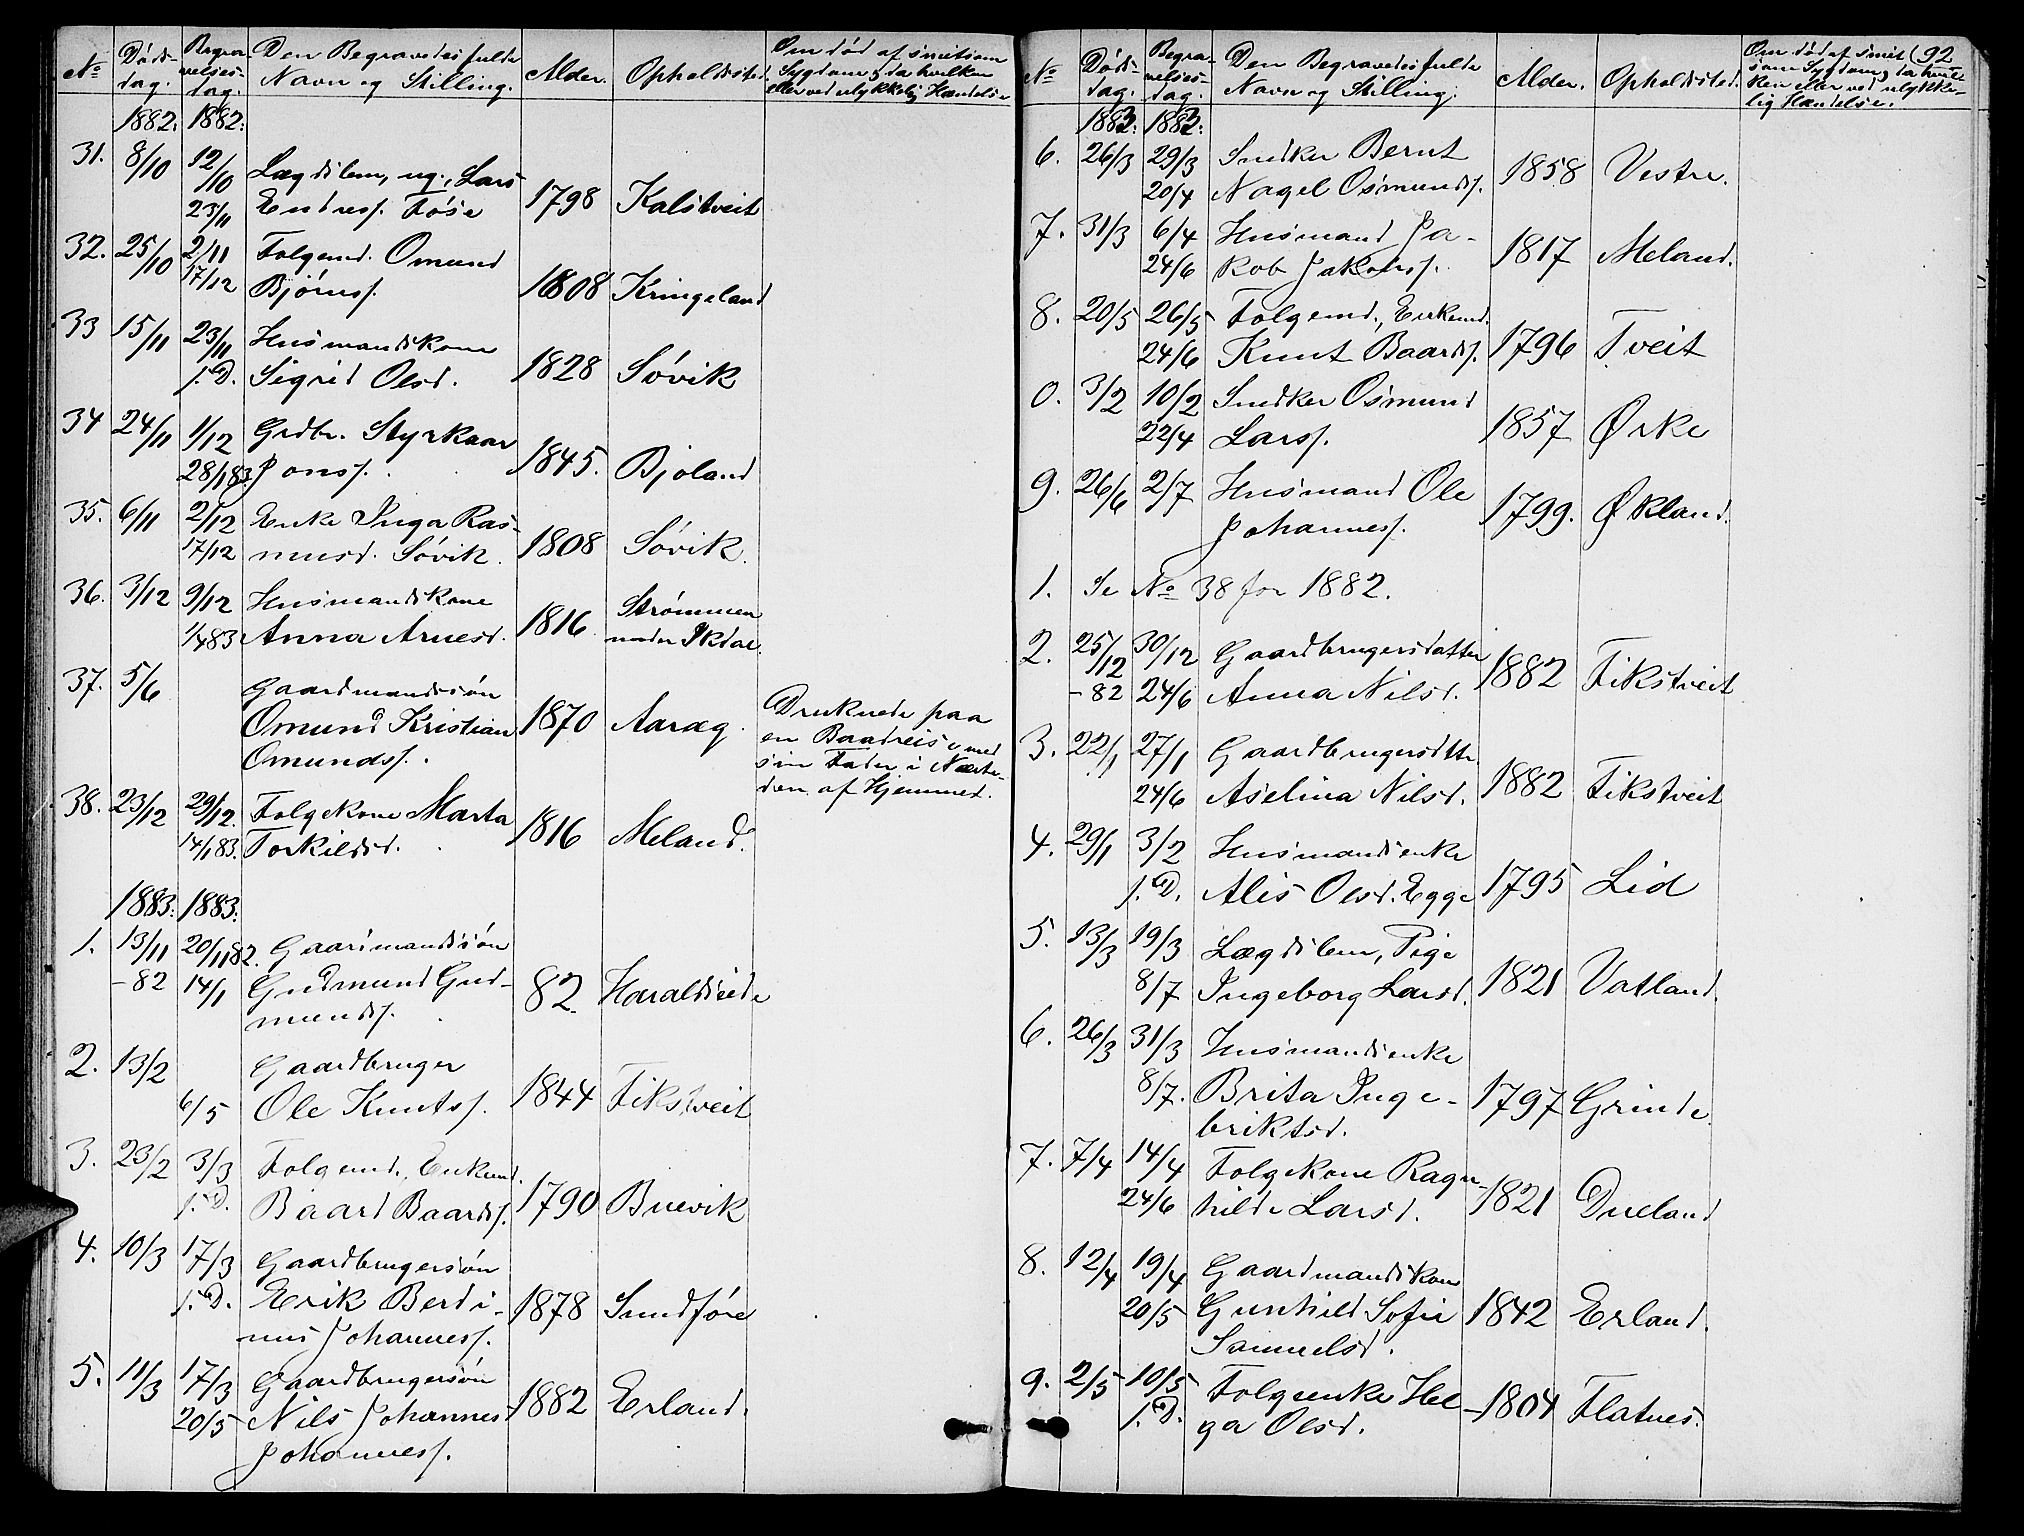 No Døds- Begra- Den Begravedes fulde Alder. Opholdssted. Om død af smitsom
dag. velses- Navn og Stilling. Sygdom, da hvilken
dag. eller ved ulykkelig Hændelse
1882. 1882.
31. 8/10 12/10 Lægdslem, ug., Lars
23/11 Endress. Føse 1798 Kalstveit
32. 25/10 2/11 Folgemd. Omund
17/12 Bjørnss. 1808 Kringeland
33 15/11 23/11 Husmandskone
s.D. Sigrid Olsd. 1828 Søvik
34 24/11 1/12 Grdbr. Styrkaar
28/1 83. Jonss. 1845. Bjoland
35. 6/11 2/12 Enke Inga Ras-
17/12 musd. Søvik. 1808 Søvik.
36. 3/12 9/12 Husmandskone Strømmen
1/4 83 Anna Arnesd. 1816. under Økdal
37. 5/6 Gaardmandssøn
Omund Kristian 1870 Aaræg. Druknede paa
Omundss. en Baadreise med
sin Fader i Nærhe-
den af Hjemmet.
38. 23/12 29/12. Folgekone Marta
14/1 83. Torkildsd. 1816 Meland.
1883. 1883.
1. 13/11 20/11 82. Gaardmandssøn
-82 14/1 Gudmund Gud- 82. Haraldseide
munds.
2. 13/2 Gaardbruger
6/5 Ole Knutss. 1844 Fikstveit
3. 23/2 3/3 Folgemd., Enkemd.
s.D. Baard Baards. 1790 Buevik
4. 10/3 17/3 Gaardbrugersøn
s.D. Erik Berdi- 1878 Sundføre
nus Johanness.
5. 11/3 17/3 Gaardbrugersøn
20/5 Nils Johannes 1882 Erland.
Johanness.
92
No Døds- Begra- Den Begravedes fulde Alder. Opholdssted. Om død af smit
dag. velses- Navn og Stilling. som Sygdom, da hvil
dag. ken eller ved ulykke-
lig Hændelse.
1883. 1883.
6. 26/3 29/3 Snedker Bernt
20/4 Nagel Osmunds. 1858 Vestre.
7. 31/3 6/4 Husmand Ja-
24/6 kob Jakobss. 1817 Meland.
8. 20/5 26/5 Folgemd., Enkemd.
24/6 Knut Baards. 1796 Tveit
0. 3/2 10/2 Snedker Osmund
22/4 Larss. 1857 Ørke
9. 26/6 2/7 Husmand Ole
Johanness. 1799. Økland.
1. Se No 38 for 1882.
2. 25/12 30/12 Gaardbrugersdatter
-82 24/6 Anna Nilsd. 1882 Fikstveit
3. 22/1 27/1 Gaardbrugersdtter
24/6 Aselina Nilsd. 1882 Fikstveit
4. 29/1 3/2 Husmandsenke
s.D. Alis Olsd. Egge 1795 Lid
5. 13/3 19/3 Lægdslem, Pige
8/7 Ingeborg Larsd. 1821 Vatland.
6. 26/3 31/3 Husmandsenke
8/7. Brita Inge- 1797 Grinde.
briktsd.
7. 7/4 14/4 Folgekone Ragn-
24/6 hilde Larsd. 1821 Dueland
8. 12/4 19/4 Gaardmandskone
20/5 Gunhild Sofie 1842 Erland.
Samuelsd.
9. 2/5 10/5 Folgeenke Hel-
s.D. ga Olsd. 1804 Flatnes.